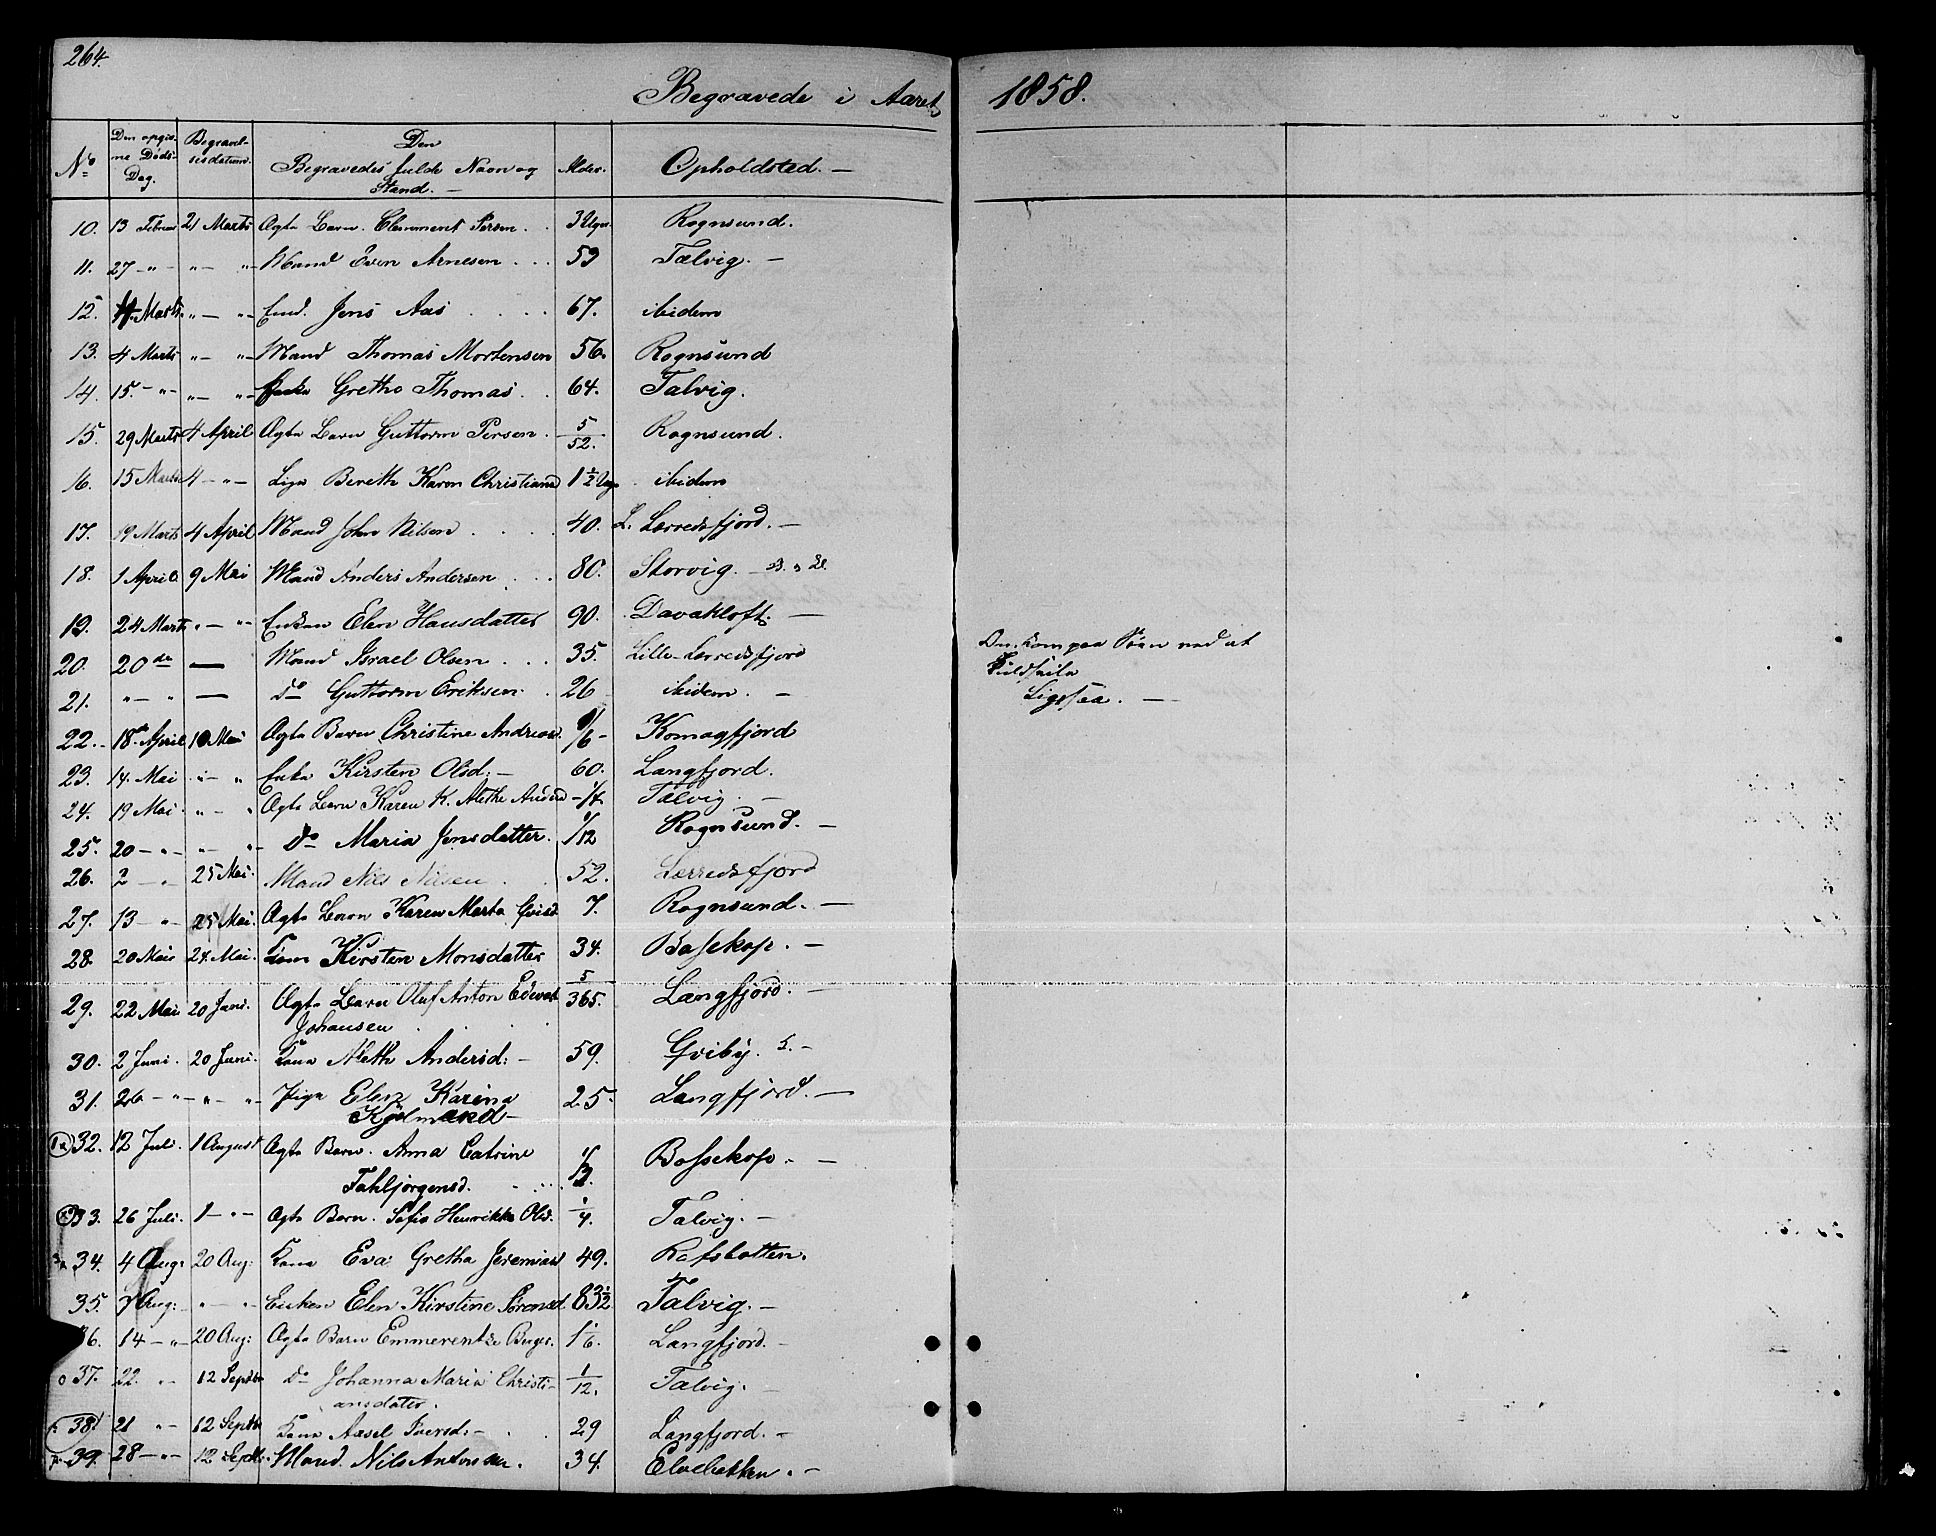 264.
Begravede i Aaret 1858.
No
Den opgivne Døds-Dag.
Begravelsesdatum.
Den Begravedes fulde Navn og Stand. —
Alder.
Opholdsted. —
10. 13 Februar 21 Marts Ægte Barn. Clemment Persen . . 3 Uger. Rognsund.
11. 27 – „ – „ – „ – Mand Even Arnesen . . . 59 Talvig. –
12. 4. Marts. „ – „ – Jens Aas . . . . 67. ibidem
13. 4 Marts „ – „ – Mand Thomas Mortensen 56. Rognsund
14. 15. – „ – „ – „ – Enke Grethe Thomas . . 64. Talvig.
15. 29 Marts 4 April Ægte Barn Guttorm Persen . 5/52. Rognsund.
16. 15 Marts 4 – „ – Pige Bereth Karen Christiansd 1 1/2 ibidem
17. 19 Marts 4 April Mand John Nilsen . . . . 40. L. Lerredsfjord. –
18. 1 April 9 Mai Mand Anders Andersen . . . 80. Storvig. –
19. 24 Marts „ – „ – Enken Elen Hansdatter 90. Davakloft. –
20. 20 de — Mand Israel Olsen . . . 35. Lille-Lerredsfjord
Omkom paa Søen ved at
21. „ – „ — do Guttorm Eriksen . . 26 ibidem. –
22. 18 April 10 Mai Ægte Barn Christine Andreasd. 1/6 – Komagfjord
23. 14. Mai „ – „ Enke Kirsten Olsd: – 60. Langfjord.
24. 19 Mai. „ – „ Ægte Barn Karen K. Alethe Andersd – 1/4 Talvig. –
25. 20 – „ – „ – „ – do Maria Jensdatter. 1/12 Rognsund. –
26. 2 – „ 25 Mai. Mand Nils Nilsen . . 52. Lerredsfjord
27. 13 – „ 25 Mai. Ægte Barn Karen Marta 7. Rognsund. –
28. 20 Mai 24. Mai. Kone Kirsten Monsdatter 34. Bossekop. –
29. 22 Mai 20 Juni. Ægte Barn Oluf Anton Edevat 5/365. Langfjord. –
Johansen . . . .
30. 2 Juni. 20 Juni. Kone Aleth Andersd: – 59. Qviby. 5. –
31. 26 – „ – „ – „ – Pige Elen Karina 25. Langfjord. –
Kjølmand –
32. 12 Jul. 1 August Ægte Barn. Anna Catrine
Fahljørgensd. . . . . 1/2. Bossekop. –
33. 26 Juli. 1 – „ – Ægte Barn. Sofie Henrikke Olsd. 1/4. Talvig. –
34. 4 Aug: 20 Aug: Kone Eva Gretha Jeremiasd 49. Rafsbotten.
35. 7 Aug: „ – „ – Enken Elen Kirstine Sørensd 83 1/2 Talvig. –
36. 14 – „ – 20 Aug: Ægte Barn Emmerentze 1 1/6. Langfjord. –
37. 22. „ – 12 Septbr do Johanna Maria Christi- 1/12. Talvig. –
ansdatter.
38. 21 „ – 12 Septbr Kone Aasel Iversd: – . . 29 Langfjord. –
39. 28 – „ – 12 Septbr Mand. Nils Andersen . 34. Elvebakken. –